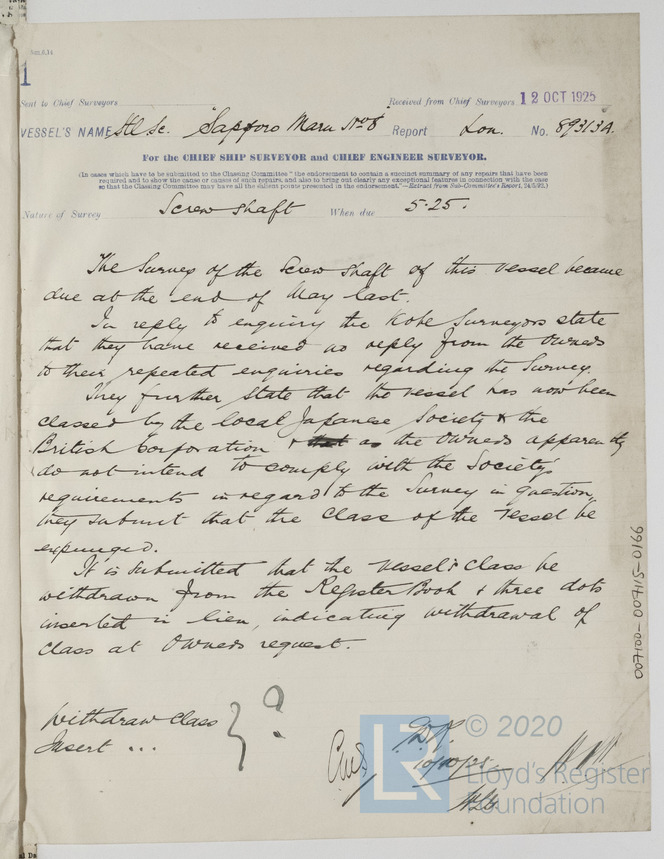 1
Sent to Chief Surveyors
Received from Chief Surveyors 12 OCT 1925
VESSEL'S NAME Stl Sc. "Sapporo Maru No 8 Report Lon. No. 89313A.
For the CHIEF SHIP SURVEYOR and CHIEF ENGINEER SURVEYOR.
(In cases which have to be submitted to the Classing Committee "the endorsement to contain a succinct summary of any repairs that have been
required and to show the cause or causes of such repairs, and also to bring out clearly any exceptional features in connection with the case
so that the Classing Committee may have all the salient points presented in the endorsement."—Extract from Sub-Committee's Report, 24/5/92.)
Nature of Survey Screw shaft When due 5.25.
The Survey of the Screw Shaft of this vessel became
due at the end of May last.
In reply to enquiry the Kobe Surveyors state
that they have received no reply from the Owners
to their repeated enquiries regarding the Survey.
They further state that the vessel has now been
classed by the local Japanese Society & the
British Corporation & as the Owners apparently
do not intend to comply with the Society's
requirements in regard to the Survey in question,
they submit that the class of the vessel be
expunged.
It is submitted that the vessel's class be
withdrawn from the Register Book & three dots
inserted in lieu, indicating withdrawal of
class at Owners request.
Withdraw class
Insert ...
?
10/10/25
007100-007115-0166
© 2020
Lloyd's Register
Foundation
LR